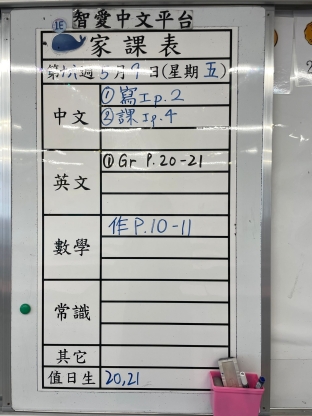 1E 智愛中文平台
家課表
第十六週 5月9日(星期五)
中文 ①寫Ip.2
②課Ip.4
英文 ①Gr P.20-21
數學 作P.10-11
常識
其它
值日生 20,21